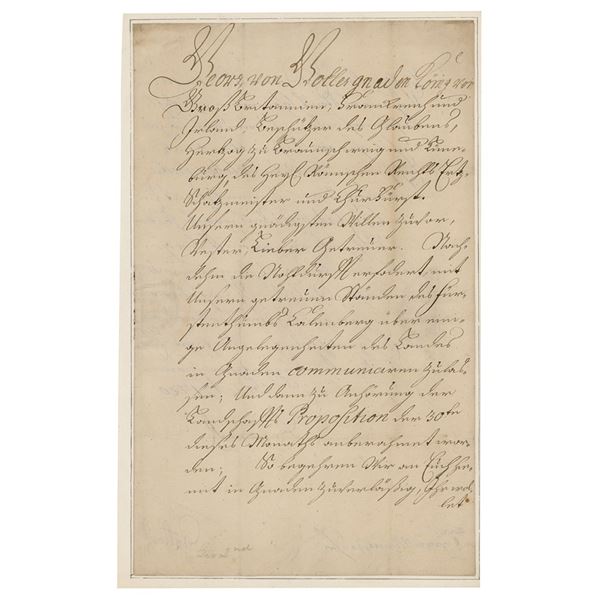 Georg von Gottes gnaden König von
Groß Britannien, Franckreich und
Irland, Beschützer des Glaubens,
Hertzog zu Braunschweig und Lüne-
burg, des Heyl. Römischen Reichs Ertz-
Schatzmeister und Churfürst.
Unsern gnädigsten Willen zuvor,
Vester, Lieber Getreuer. Nach-
dehm die Nohtdurfft erfodert mit
Unsern getreuen Ständen des Für-
stenthumbs Calenberg über eini-
ge Angelegenheiten des Landes
in Gnaden communiciren zu laß-
sen; Und dann zu Anhörung der
Landschaffts Proposition der 30te
dieses Monaths anberahmet wor-
den; So begehren Wir an Euch hie-
mit in Gnaden zuverläßig, Ihr wol-
let